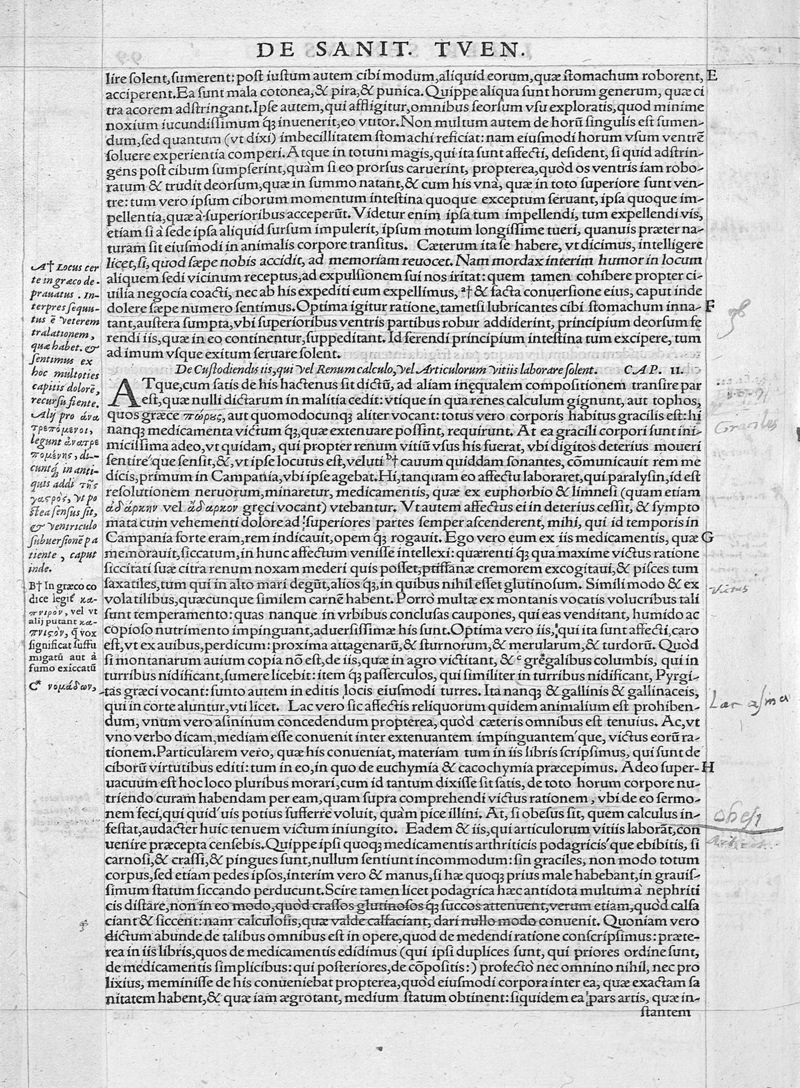 DE SANIT. TVEN.
lire solent, sumerent: post iustum autem cibi modum, aliquid eorum, quæ stomachum roborent, E
acciperent. Ea sunt mala cotonea, & pira, & punica. Quippe aliqua sunt horum generum, quæ ci
tra acorem adstringant. Ipse autem, qui affligitur, omnibus seorsum vsu exploratis, quod minime
noxium iucundissimum q́; inuenerit, eo vtitor. Non multum autem de horũ singulis est sumen-
dum, sed quantum (vt dixi) imbecillitatem stomachi reficiat: nam eiusmodi horum vsum ventrẽ
soluere experientia comperi. Atque in totum magis, qui ita sunt affecti, desident, si quid adstrin-
gens post cibum sumpserint, quàm si eo prorsus caruerint, propterea, quòd os ventris iam robo-
ratum & trudit deorsum, quæ in summo natant, & cum his vnà, quæ in toto superiore sunt ven-
tre: tum vero ipsum ciborum momentum intestina quoque exceptum seruant, ipsa quoque im-
pellentia, quæ à superioribus acceperũt. Videtur enim ipsa tum impellendi, tum expellendi vis,
etiam si à sede ipsa aliquid sursum impulerit, ipsum motum longissime tueri, quanuis præter na-
turam sit eiusmodi in animalis corpore transitus. Cæterum ita se habere, vt dicimus, intelligere
licet, si, quod sæpe nobis accidit, ad memoriam reuocet. Nam mordax interim humor in locum
aliquem sedi vicinum receptus, ad expulsionem sui nos iritat: quem tamen cohibere propter ci-
uilia negocia coacti, nec ab his expediti eum expellimus, ᵃ† & facta conuersione eius, caput inde
dolere sæpe numero sentimus. Optima igitur ratione, tametsi lubricantes cibi stomachum inna- F
tant, austera sumpta, vbi superioribus ventris partibus robur addiderint, principium deorsum fe
rendi iis, quæ in eo continentur, suppeditant. Id ferendi principium intestina tum excipere, tum
ad imum vsque exitum seruare solent.
De Custodiendis iis, qui vel Renum calculo, vel Articulorum vitiis laborare solent. CAP. II.
ATque, cum satis de his hactenus sit dictũ, ad aliam inęqualem compositionem transire par
est, quæ nulli dictarum in malitia cedit: vtique in qua renes calculum gignunt, aut tophos,
quos græce πώρους, aut quomodocunq; aliter vocant: totus vero corporis habitus gracilis est: hi
nanq; medicamenta victum q́;, quæ extenuare possint, requirunt. At ea gracili corpori sunt ini-
micissima adeo, vt quidam, qui propter renum vitiũ vsus his fuerat, vbi digitos deterius moueri
sentire que sensit, &, vt ipse locutus est, veluti ᵇ† cauum quiddam sonantes, cõmunicauit rem me
dicis, primum in Campania, vbi ipse agebat. Hi, tanquam eo affectu laboraret, qui paralysin, id est
resolutionem neruorum, minaretur, medicamentis, quæ ex euphorbio & limnesi (quam etiam
ἀδάρκην vel ἄδαρκον gręci vocant) vtebantur. Vt autem affectus ei in deterius cessit, & sympto
mata cum vehementi dolore ad superiores partes semper ascenderent, mihi, qui id temporis in
Campania forte eram, rem indicauit, opem q́; rogauit. Ego vero eum ex iis medicamentis, quæ G
memorauit, siccatum, in hunc affectum venisse intellexi: quærenti q́; qua maxime victus ratione
siccitati suæ citra renum noxam mederi quis posset, ptissanæ cremorem excogitaui, & pisces tum
saxatiles, tum qui in alto mari degũt, alios q́;, in quibus nihil esset glutinosum. Simili modo & ex
volatilibus, quæcunque similem carnẽ habent. Porrò multæ ex montanis vocatis volucribus tali
sunt temperamento: quas nanque in vrbibus conclusas caupones, qui eas venditant, humido ac
copioso nutrimento impinguant, aduersissimæ his sunt. Optima vero iis, qui ita sunt affecti, caro
est, vt ex auibus, perdicum: proxima attagenarũ, & sturnorum, & merularum, & turdorũ. Quòd
si montanarum auium copia nõ est, de iis, quæ in agro victitant, & ᶜ gregalibus columbis, qui in
turribus nidificant, sumere licebit: item q́; passerculos, qui similiter in turribus nidificant, Pyrgi-
tas græci vocant: sunto autem in editis locis eiusmodi turres. Ita nanq; & gallinis & gallinaceis,
qui in corte aluntur, vti licet. Lac vero sic affectis reliquorum quidem animalium est prohiben-
dum, vnum vero asininum concedendum propterea, quòd cæteris omnibus est tenuius. Ac, vt
vno verbo dicam, mediam esse conuenit inter extenuantem impinguantem que, victus eorũ ra-
tionem. Particularem vero, quæ his conueniat, materiam tum in iis libris scripsimus, qui sunt de
ciborũ virtutibus editi: tum in eo, in quo de euchymia & cacochymia præcepimus. Adeo super- H
uacuum est hoc loco pluribus morari, cum id tantum dixisse sit satis, de toto horum corpore nu-
triendo curam habendam per eam, quam supra comprehendi victus rationem, vbi de eo sermo-
nem feci, qui quid uis potius sufferre voluit, quàm pice illini. At, si obesus sit, quem calculus in-
festat, audacter huic tenuem victum iniungito. Eadem & iis, qui articulorum vitiis laborãt, con
uenire præcepta censebis. Quippe ipsi quoq; medicamentis arthriticis podagricis que ebibitis, si
carnosi, & crassi, & pingues sunt, nullum sentiunt incommodum: sin graciles, non modo totum
corpus, sed etiam pedes ipsos, interim vero & manus, si hæ quoq; prius male habebant, in grauis-
simum statum siccando perducunt. Scire tamen licet podagrica hæc antidota multum à nephriti
cis distare, non in eo modo, quòd crassos glutinosos q́; succos attenuent, verum etiam, quòd calfa
ciant & siccent: nam calculosis, quæ valde calfaciant, dari nullo modo conuenit. Quoniam vero
dictum abunde de talibus omnibus est in opere, quod de medendi ratione conscripsimus: præte-
rea in iis libris, quos de medicamentis edidimus (qui ipsi duplices sunt, qui priores ordine sunt,
de medicamentis simplicibus: qui posteriores, de cõpositis:) profecto nec omnino nihil, nec pro
lixius, meminisse de his conueniebat propterea, quòd eiusmodi corpora inter ea, quæ exactam sa
nitatem habent, & quæ iam ægrotant, medium statum obtinent: siquidem ea pars artis, quæ in-
stantem
A† Locus cer
te in græco de-
prauatus. In-
terpres sequu-
tus ẽ veterem
tralationem,
quæ habet. &
sentimus ex
hoc multoties
capitis dolorẽ,
recursu fiente.
Alij pro ἀνα
τρεπόμενοι,
legunt ἀνατρε
πομένης, di-
cuntq; in anti-
quis addi τῆς
γαςρός, vt po
stea sensus sit,
& ventriculo
subuersionẽ pa
tiente, caput
inde.
B† In græco co
dice legit̃ κα-
πνιρὸν, vel vt
alij putant κα-
πνιςὸν, q̃ vox
significat suffu
migatũ aut à
fumo exiccatũ
Cᵃ νομάδων,
Victus
Lac asinæ
obesi